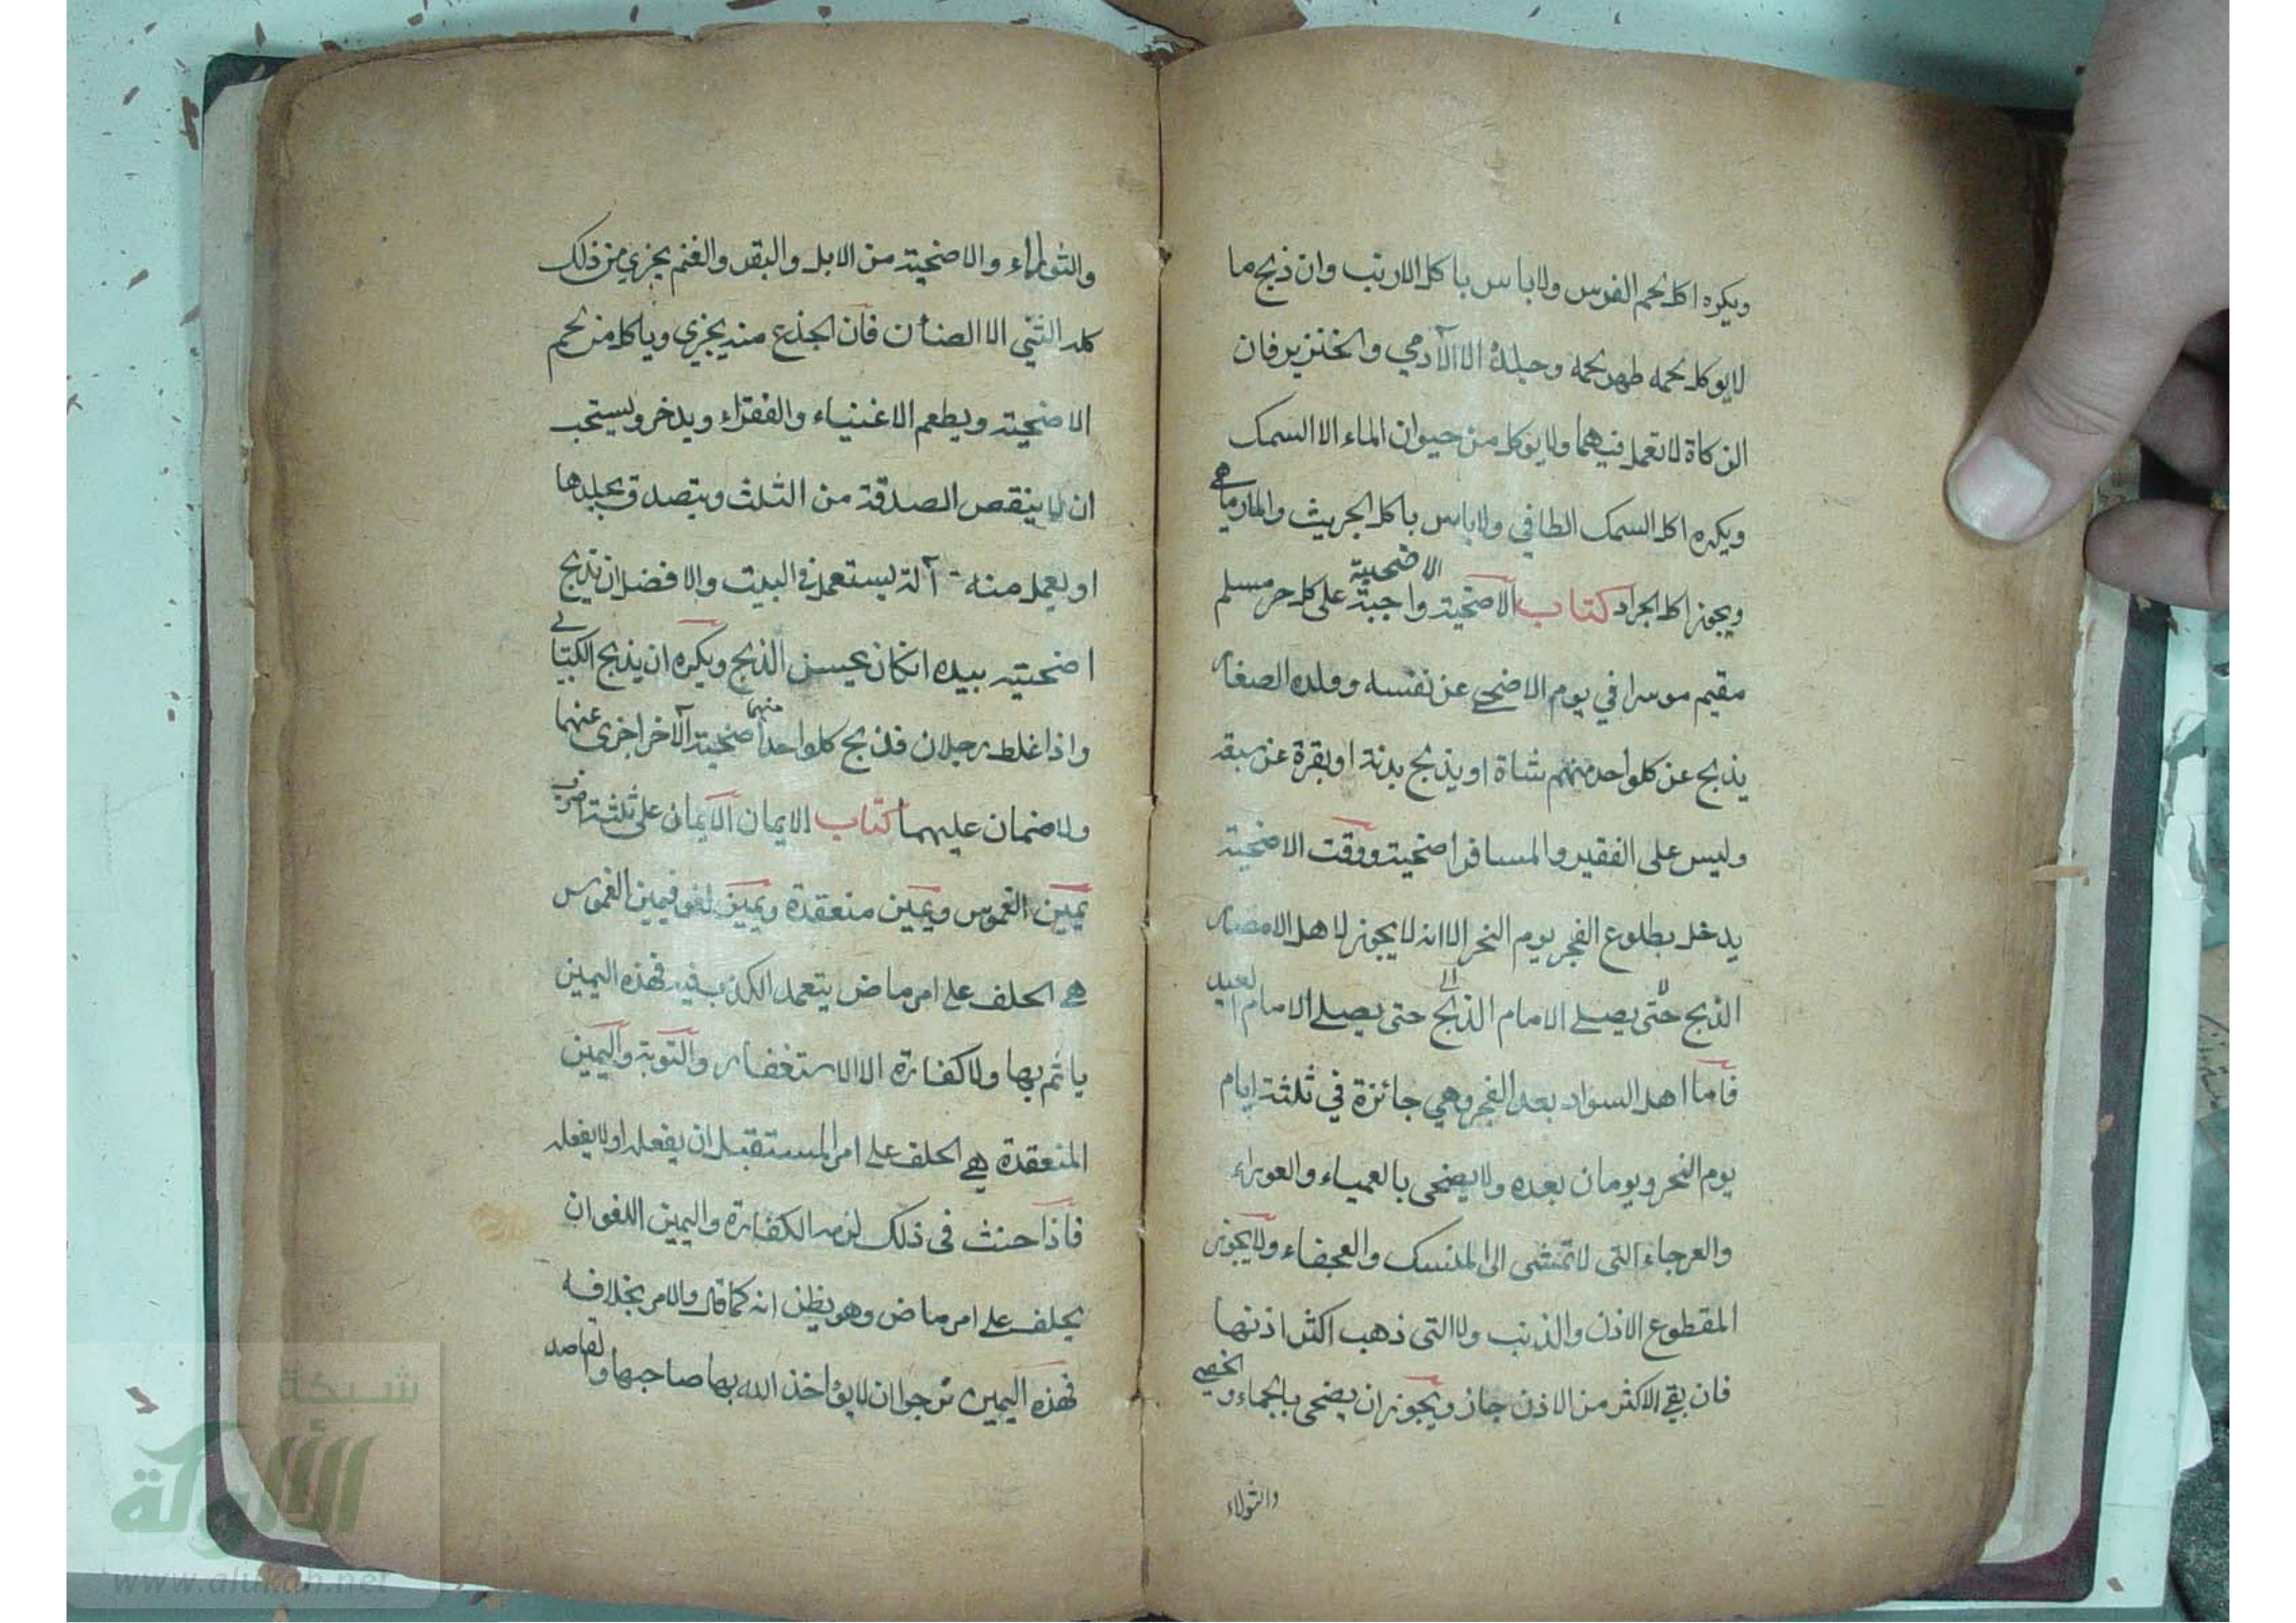 ويكره اكل لحم الفرس ولاباس باكل الارنب وان ذبح ما
لايوكل لحمه طهر لحمه وجلده الا الآدمي والخنزير فان
الزكاة لاتعمل فيهما ولايوكل من حيوان الماء الا السمك
ويكره اكل السمك الطافي ولاباس باكل الجريث والمارماهي
ويجوز اكل الجراد كتاب الاضحية الاضحية واجبة على كل حر مسلم
مقيم موسرا في يوم الاضحى عن نفسه وولده الصغار
يذبح عن كلواحد منهم شاة او يذبح بدنة او بقرة عن سبعة
وليس على الفقير والمسافر اضحية ووقت الاضحية
يدخل بطلوع الفجر يوم النحر الا انه لايجوز لاهل الامصار
الذبح حتى يصلي الامام الذبح حتى يصلي الامام العيد
فاما اهل السواد بعد الفجر وهي جائزة في ثلثة ايام
يوم النحر ويومان بعده ولايضحى بالعمياء والعوراء
والعرجاء التى لاتمشى الى المنسك والعجفاء ولايجوز
المقطوع الاذن والذنب ولا التى ذهب اكثر اذنها
فان بقي الاكثر من الاذن جاز ويجوز ان يضحى بالجماء والخصي
والثولاء
والثولاء والاضحية من الابل والبقر والغنم يجزي من ذلك
كله الثني الا الضأن فان الجذع منه يجزي وياكل من لحم
الاضحية ويطعم الاغنياء والفقراء ويدخر ويستحب
ان لا ينقص الصدقة من الثلث ويتصدق بجلدها
او يعمل منه آلة يستعمل في البيت والافضل ان يذبح
اضحيته بيده انكان يحسن الذبح ويكره ان يذبح الكتابي
واذا غلط رجلان فذبح كلواحد منهما اضحية الآخر اجزى عنهما
ولاضمان عليهما كتاب الايمان الايمان على ثلثة اضرب
يمين الغموس ويمين منعقدة ويمين لغو فيمين الغموس
هي الحلف على امر ماض يتعمد الكذب فيه فهذه اليمين
ياثم بها ولاكفارة الا الاستغفار والتوبة واليمين
المنعقدة هي الحلف على امر المستقبل ان يفعله او لايفعله
فاذا حنث فى ذلك لزمه الكفارة واليمين اللغو ان
يحلف على امر ماض وهو يظن انه كما قال والامر بخلافه
فهذه اليمين نرجوا ان لايؤاخذ الله بها صاحبها والقاصد
شبكة
الألوكة
www.alukah.net